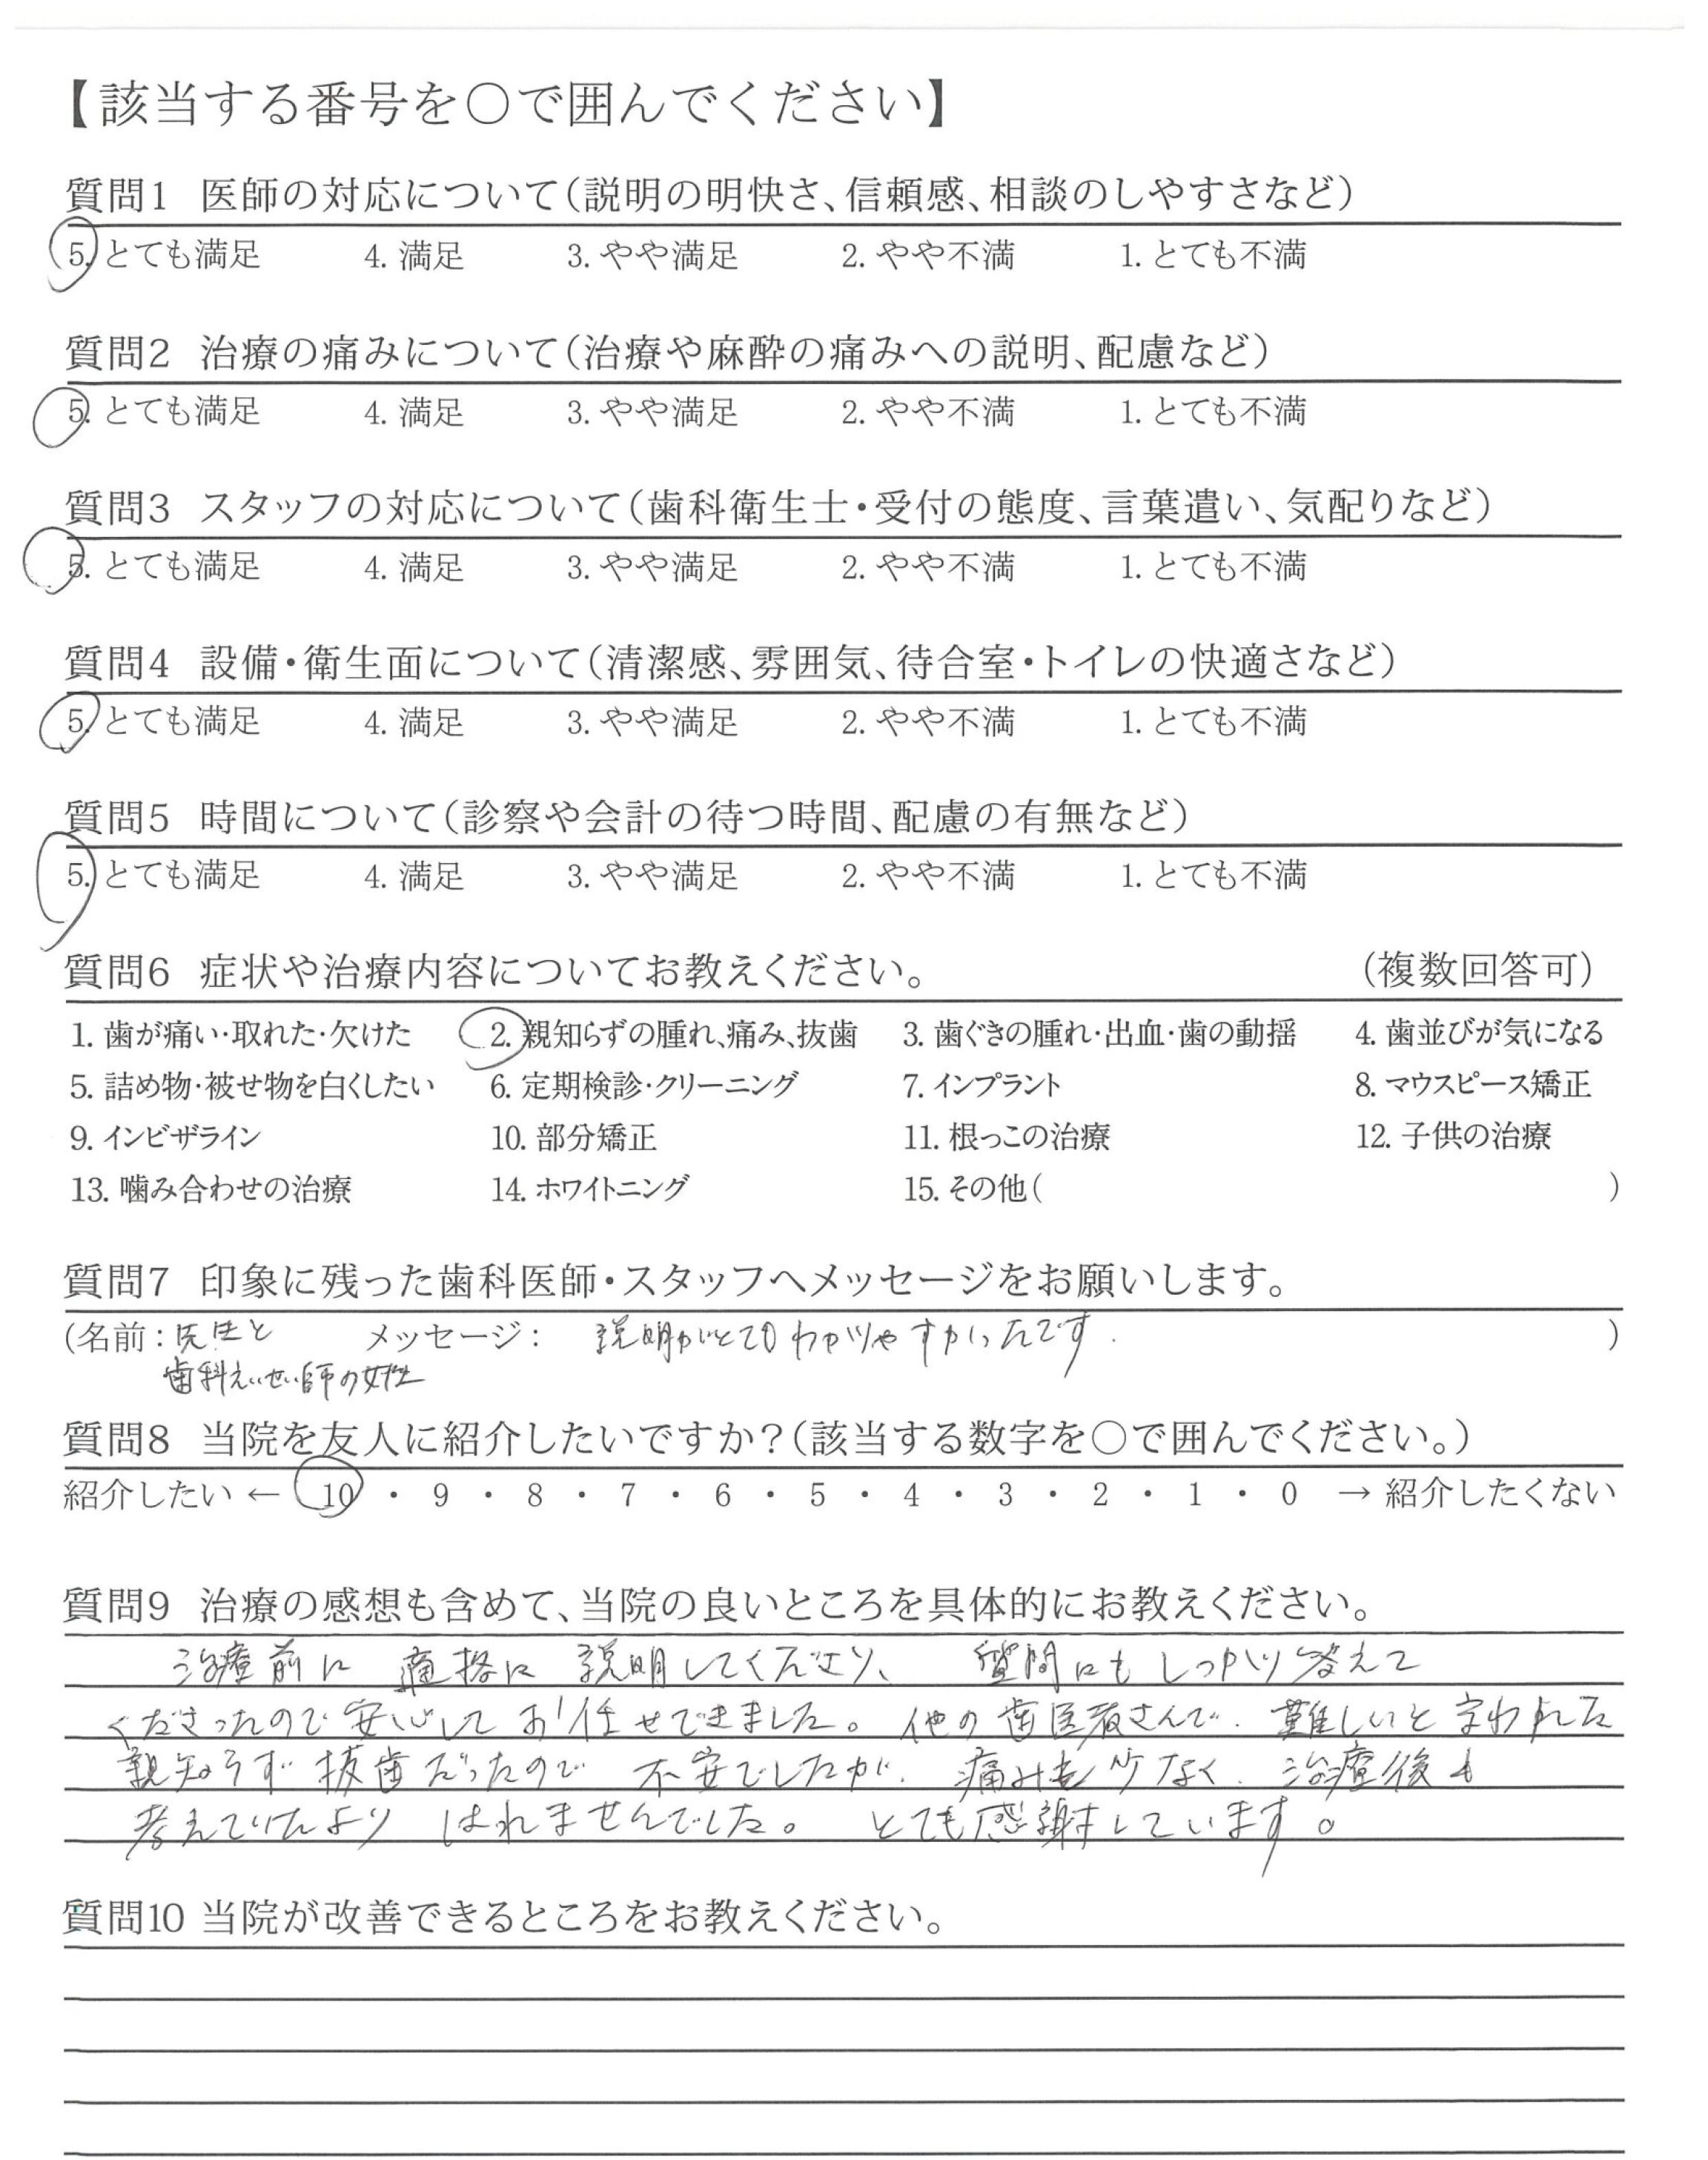 【該当する番号を○で囲んでください】
質問1 医師の対応について(説明の明快さ、信頼感、相談のしやすさなど)
5. とても満足 4. 満足 3. やや満足 2. やや不満 1. とても不満
質問2 治療の痛みについて(治療や麻酔の痛みへの説明、配慮など)
5. とても満足 4. 満足 3. やや満足 2. やや不満 1. とても不満
質問3 スタッフの対応について(歯科衛生士・受付の態度、言葉遣い、気配りなど)
5. とても満足 4. 満足 3. やや満足 2. やや不満 1. とても不満
質問4 設備・衛生面について(清潔感、雰囲気、待合室・トイレの快適さなど)
5. とても満足 4. 満足 3. やや満足 2. やや不満 1. とても不満
質問5 時間について(診察や会計の待つ時間、配慮の有無など)
5. とても満足 4. 満足 3. やや満足 2. やや不満 1. とても不満
質問6 症状や治療内容についてお教えください。 (複数回答可)
1. 歯が痛い・取れた・欠けた 2. 親知らずの腫れ、痛み、抜歯 3. 歯ぐきの腫れ・出血・歯の動揺 4. 歯並びが気になる
5. 詰め物・被せ物を白くしたい 6. 定期検診・クリーニング 7. インプラント 8. マウスピース矯正
9. インビザライン 10. 部分矯正 11. 根っこの治療 12. 子供の治療
13. 噛み合わせの治療 14. ホワイトニング 15. その他( )
質問7 印象に残った歯科医師・スタッフへメッセージをお願いします。
(名前：先生と メッセージ： 説明がとてもわかりやすかったです. )
歯科えいせい師の女性
質問8 当院を友人に紹介したいですか？(該当する数字を○で囲んでください。)
紹介したい ← 10 ・ 9 ・ 8 ・ 7 ・ 6 ・ 5 ・ 4 ・ 3 ・ 2 ・ 1 ・ 0 → 紹介したくない
質問9 治療の感想も含めて、当院の良いところを具体的にお教えください。
治療前に 適格に 説明してくださり、 質問にもしっかり答えて
くださったので安心してお任せできました。他の歯医者さんで、難しいと言われた
親知らず抜歯だったので 不安でしたが、痛みも少なく、治療後も
考えていたより はれませんでした。 とても感謝しています。
質問10 当院が改善できるところをお教えください。